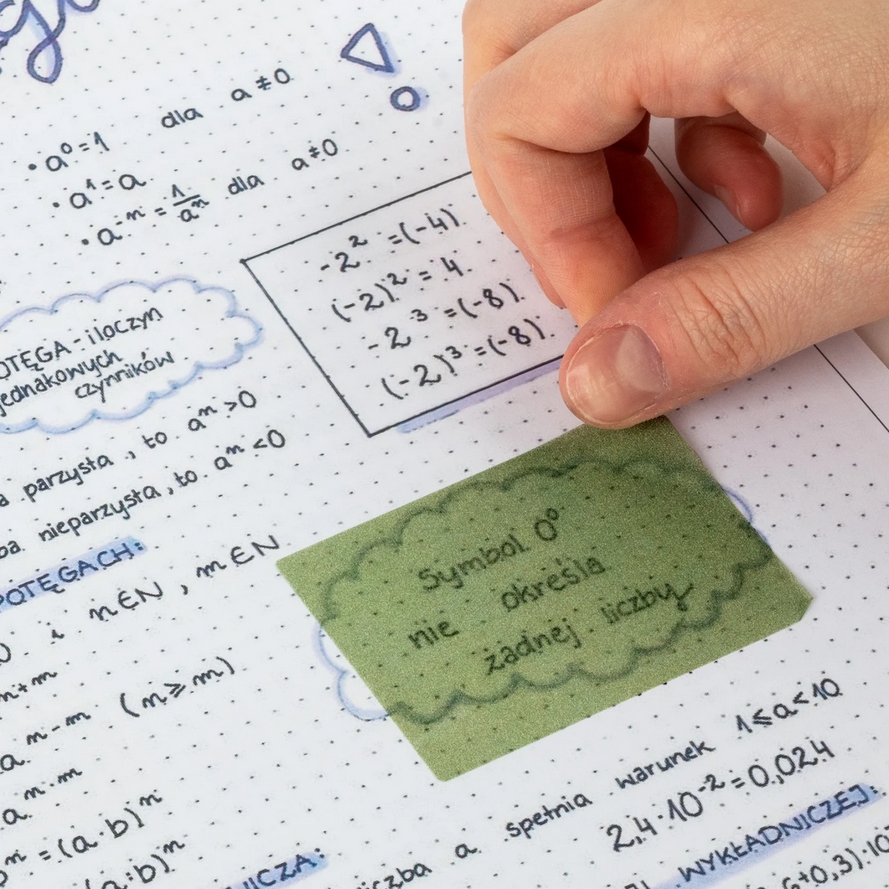 • a⁰=1 dla a≠0
• a¹=a
• a⁻ⁿ = 1/aⁿ dla a≠0
-2² =(-4)
(-2)² = 4
-2³ =(-8)
(-2)³=(-8)
iloczyn
jednakowych
czynników
parzysta, to aⁿ>0
nieparzysta, to aⁿ<0
POTĘGACH:
i n∈N, m∈N
(n⩾m)
=(a·b)ⁿ
(a:b)ⁿ
Symbol 0⁰
nie określa
żadnej liczby
a spełnia warunek 1⩽a<10
2,4·10⁻²=0,024
WYKŁADNICZEJ: